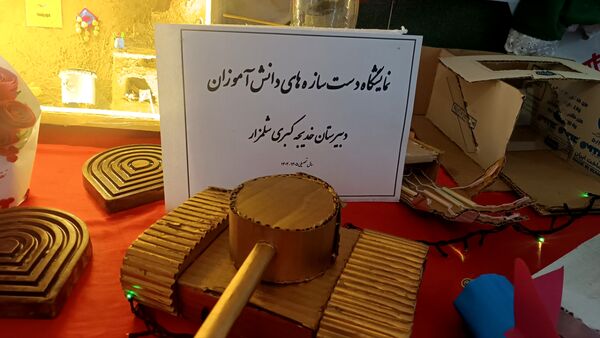 نمایشگاه دست سازه های دانش آموزان
دبیرستان خدیجه کبری شلمزار
سال تحصیلی